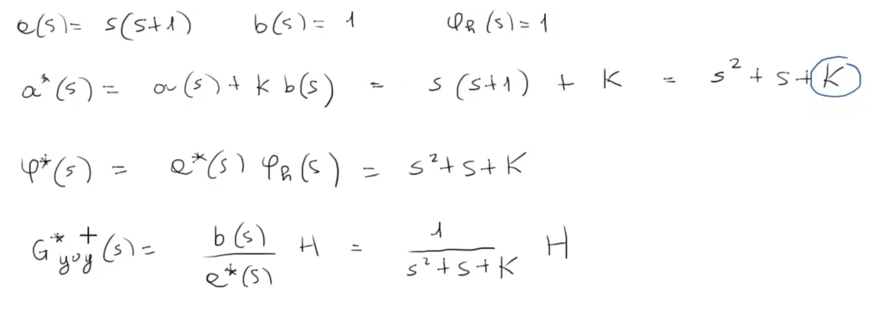 a(s) = s(s+1) b(s) = 1 φ_R(s) = 1
a*(s) = a(s) + K b(s) = s(s+1) + K = s² + s + K
φ*(s) = a*(s) φ_R(s) = s² + s + K
G*⁺_{y°y}(s) = b(s)/a*(s) H = 1/(s² + s + K) H